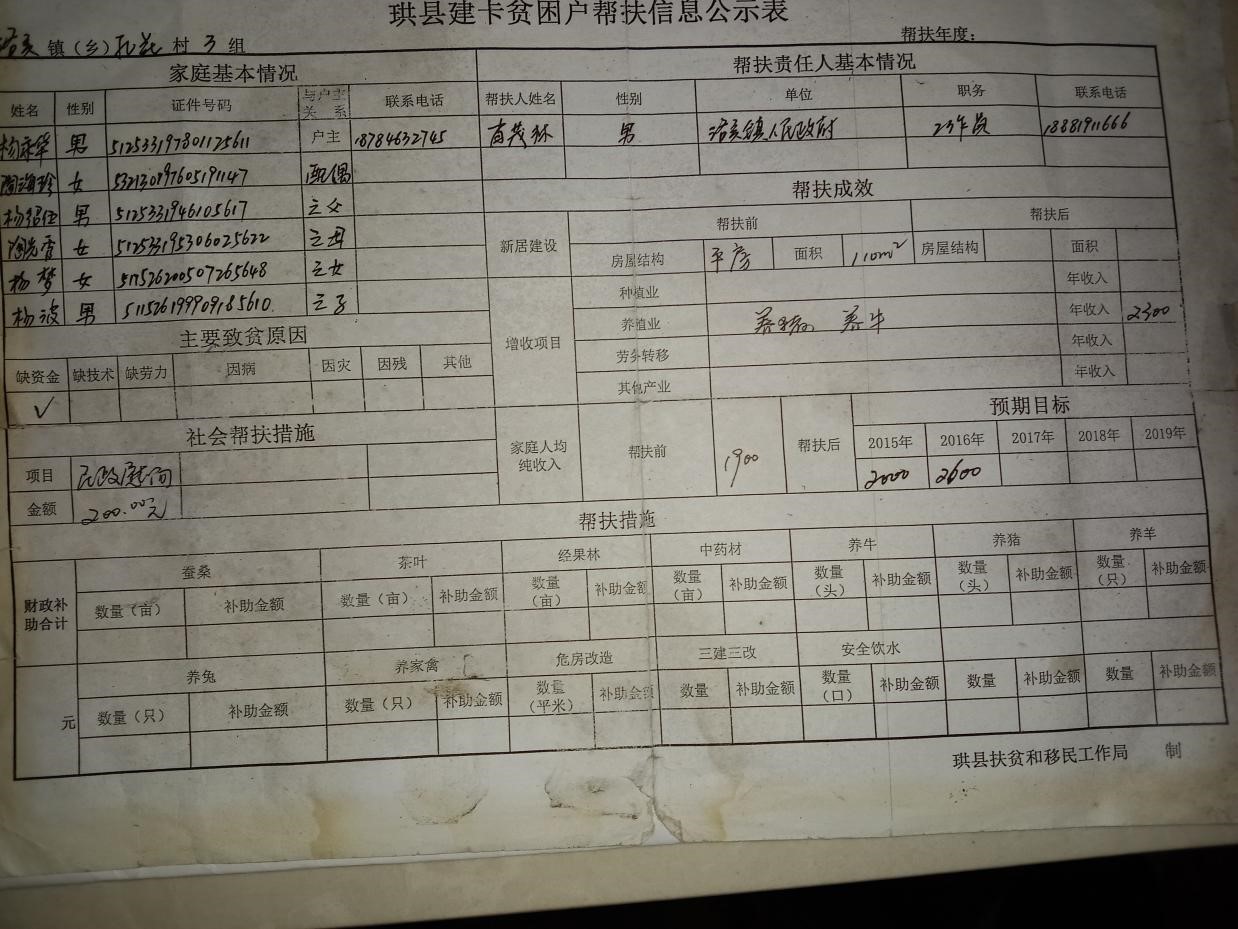 珙县建卡贫困户帮扶信息公示表
镇（乡） 村 3 组 帮扶年度：
家庭基本情况 帮扶责任人基本情况
姓名 性别 证件号码 与户主关系 联系电话 帮扶人姓名 性别 单位 职务 联系电话
杨 华 男 512533197801125611 户主 18784632745 男 洛亥镇人民政府 工作员 18881911666
陶海珍 女 532130197605191147 配偶
杨绍伍 男 5125331946105617 之父
陶光香 女 512533195306025622 之母
杨梦 女 511526200507265648 之女
杨波 男 511526199909185610 之子
帮扶成效
新居建设 帮扶前 帮扶后
房屋结构 平房 面积 110m² 房屋结构 面积
增收项目 种植业 年收入
养殖业 养猪 养牛 年收入 2300
劳务转移 年收入
其他产业 年收入
主要致贫原因
缺资金 缺技术 缺劳力 因病 因灾 因残 其他
√
社会帮扶措施
项目 民政慰问
金额 200.00元
家庭人均纯收入 帮扶前 1900 帮扶后 预期目标
2015年 2016年 2017年 2018年 2019年
2000 2600
帮扶措施
财政补助合计 蚕桑 茶叶 经果林 中药材 养牛 养猪 养羊
数量（亩） 补助金额 数量（亩） 补助金额 数量（亩） 补助金额 数量（亩） 补助金额 数量（头） 补助金额 数量（头） 补助金额 数量（只） 补助金额
元 养兔 养家禽 危房改造 三建三改 安全饮水
数量（只） 补助金额 数量（只） 补助金额 数量（平米） 补助金额 数量 补助金额 数量（口） 补助金额 数量 补助金额 数量 补助金额
珙县扶贫和移民工作局 制